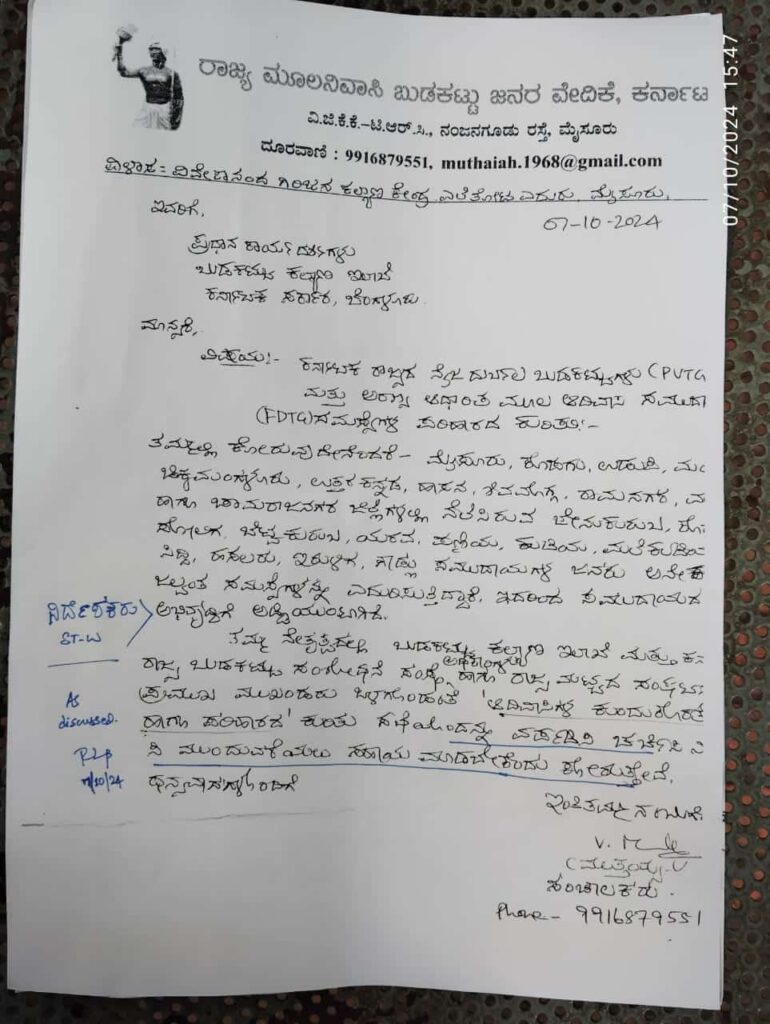 ರಾಜ್ಯ ಮೂಲನಿವಾಸಿ ಬುಡಕಟ್ಟು ಜನರ ವೇದಿಕೆ, ಕರ್ನಾಟ
ವಿ.ಜಿ.ಕೆ.ಕೆ.–ಟಿ.ಆರ್.ಸಿ., ನಂಜನಗೂಡು ರಸ್ತೆ, ಮೈಸೂರು
ದೂರವಾಣಿ : 9916879551, muthaiah.1968@gmail.com
ವಿಳಾಸ:- ವಿವೇಕಾನಂದ ಗಿರಿಜನ ಕಲ್ಯಾಣ ಕೇಂದ್ರ ಎಲೆತೋಟ ಎದುರು, ಮೈಸೂರು.
07-10-2024
ಇವರಿಗೆ,
ಪ್ರಧಾನ ಕಾರ್ಯದರ್ಶಿಗಳು
ಬುಡಕಟ್ಟು ಕಲ್ಯಾಣ ಇಲಾಖೆ
ಕರ್ನಾಟಕ ಸರ್ಕಾರ, ಬೆಂಗಳೂರು.
ಮಾನ್ಯರೆ,
ವಿಷಯ:- ಕರ್ನಾಟಕ ರಾಜ್ಯದ ನೈಜ ದುರ್ಬಲ ಬುಡಕಟ್ಟುಗಳು (PVTG
ಮತ್ತು ಅರಣ್ಯ ಆಧಾರಿತ ಮೂಲ ಆದಿವಾಸಿ ಸಮುದಾ
(FDTG) ಸಮಸ್ಯೆಗಳ ಪರಿಹಾರದ ಕುರಿತು:-
ತಮ್ಮಲ್ಲಿ ಕೋರುವುದೇನೆಂದರೆ- ಮೈಸೂರು, ಕೊಡಗು, ಉಡುಪಿ,
ಚಿಕ್ಕಮಂಗಳೂರು, ಉತ್ತರಕನ್ನಡ, ಹಾಸನ, ಶಿವಮೊಗ್ಗ, ರಾಮನಗರ,
ಹಾಗೂ ಚಾಮರಾಜನಗರ ಜಿಲ್ಲೆಗಳಲ್ಲಿ ನೆಲೆಸಿರುವ ಜೇನುಕುರುಬ,
ಸೋಲಿಗ, ಬೆಟ್ಟಕುರುಬ, ಯರವ, ಪಣಿಯ, ಕುಡಿಯ, ಮಲೆಕುಡಿಯ
ಸಿದ್ಧಿ, ಹಸಲರು, ಇರುಳಿಗ, ಗೌಡ್ಲು ಸಮುದಾಯಗಳ ಜನರು ಅನೇಕ
ಜ್ವಲಂತ ಸಮಸ್ಯೆಗಳನ್ನು ಎದುರಿಸುತ್ತಿದ್ದಾರೆ. ಇದರಿಂದ ಸಮುದಾಯದ
ಅಭಿವೃದ್ಧಿಗೆ ಅಡ್ಡಿಯುಂಟಾಗಿದೆ.
ನಿರ್ದೇಶಕರು
ST-W
ತಮ್ಮ ನೇತೃತ್ವದಲ್ಲಿ ಬುಡಕಟ್ಟು ಕಲ್ಯಾಣ ಇಲಾಖೆ ಮತ್ತು ಕ
ರಾಜ್ಯ ಬುಡಕಟ್ಟು ಸಂಶೋಧನೆ ಸಂಸ್ಥೆ ಹಾಗೂ ರಾಜ್ಯ ಮಟ್ಟದ
ಪ್ರಮುಖ ಮುಖಂಡರು ಒಳಗೊಂಡಂತೆ 'ಆದಿವಾಸಿಗಳ ಕುಂದುಕೊರತೆ
ಹಾಗೂ ಪರಿಹಾರದ' ಕುರಿತು ಸಭೆಯೊಂದನ್ನು ಏರ್ಪಡಿಸಿ ಚರ್ಚಿಸಿ
ಮುಂದುವರೆಯಲು ಸಹಾಯ ಮಾಡಬೇಕೆಂದು ಕೋರುತ್ತೇವೆ.
As
discussed.
7/10/24
ಧನ್ಯವಾದಗಳೊಂದಿಗೆ
ಇಂತಿ ತಮ್ಮ ನಂಬುಗೆ
(ಮುತ್ತಯ್ಯ.V
ಸಂಚಾಲಕರು.
Phone- 9916879551
07/10/2024 15:47